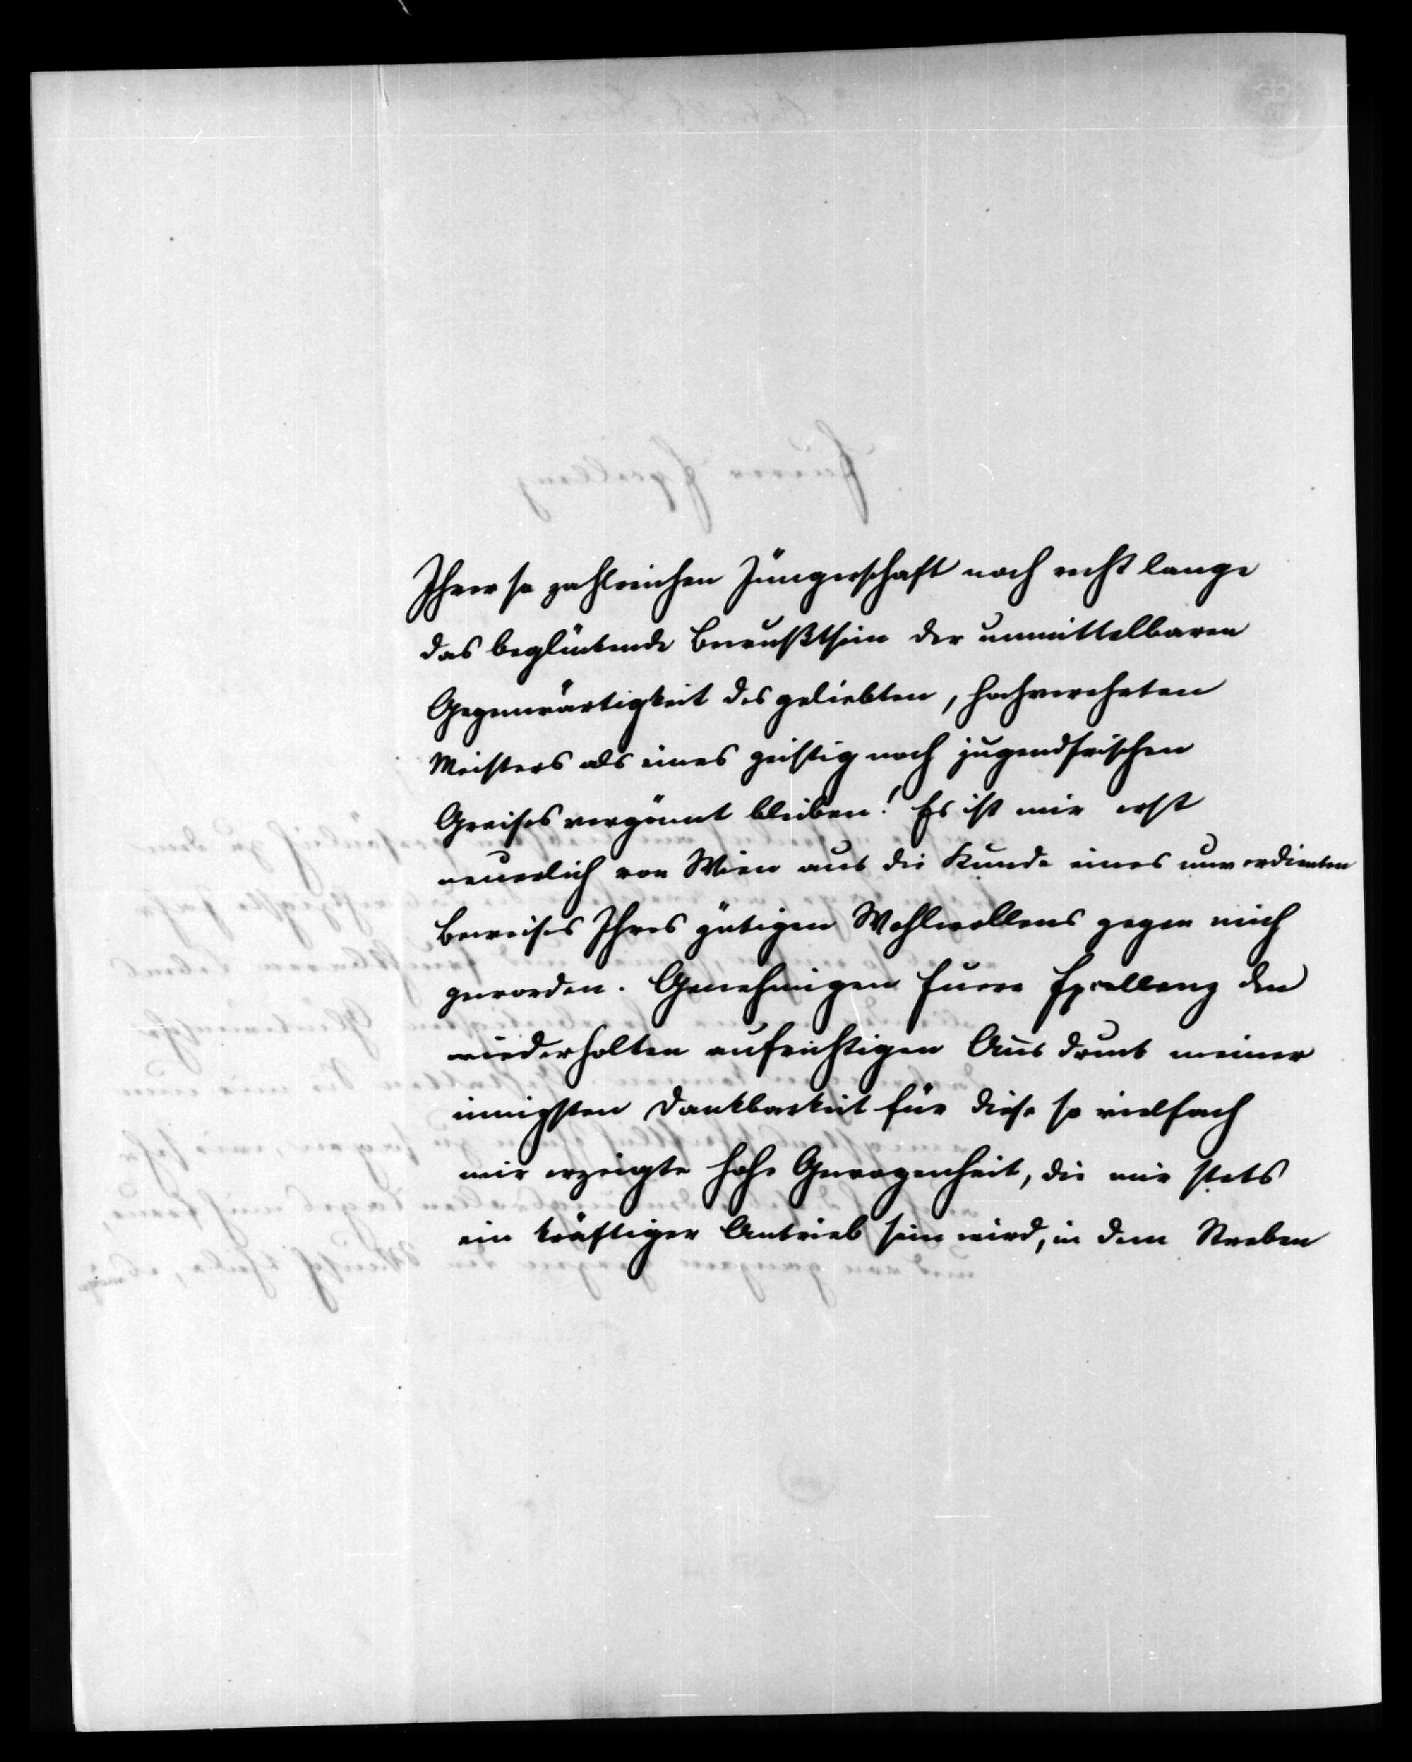 Ihrer so zahlreichen Jüngerschaft noch recht lange
das beglückende Bewußtsein der unmittelbaren
Gegenwärtigkeit des geliebten, hochverehrten
Meisters als eines geistig noch jugendfrischen
Greises vergönnt bleiben! Es ist mir erst
neuerlich von Wien aus die Kunde eines unverdienten
Beweises Ihres gütigen Wohlwollens gegen mich
geworden. Genehmigen Eurer Excellenz den
wiederholten aufrichtigen Ausdruck meiner
innigsten Dankbarkeit für diese so vielfach
mir erzeigte hohe Gewogenheit, die mir stets
ein kräftiger Antrieb sein wird, in dem Streben